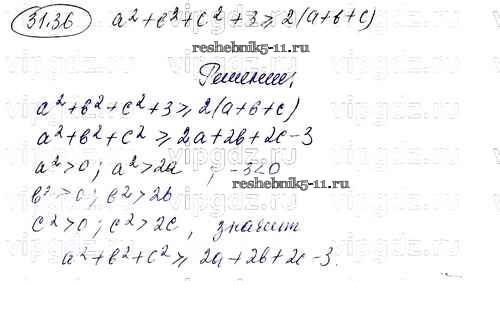 31.36 a² + b² + c² + 3 ≥ 2(a+b+c)
reshebnik5-11.ru
Решение,
a² + b² + c² + 3 ≥ 2(a+b+c)
a² + b² + c² ≥ 2a + 2b + 2c - 3
a² > 0; a² > 2a ; -3<0
reshebnik5-11.ru
b² > 0; b² > 2b
c² > 0; c² > 2c, значит
a² + b² + c² ≥ 2a + 2b + 2c - 3.